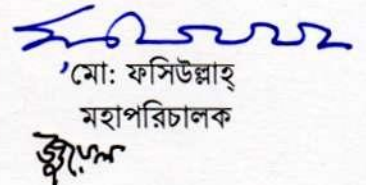 মো: ফসিউল্লাহ্
মহাপরিচালক
জুয়েল